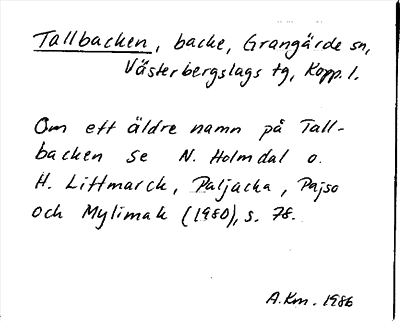 Tallbacken, backe, Grangärde sn,
Västerbergslags tg, Kopp. l.
Om ett äldre namn på Tall-
backen se N. Holmdal o.
H. Littmarck, Paljacka, Pajso
och Mylimak (1980), s. 78.
A.Km. 1986